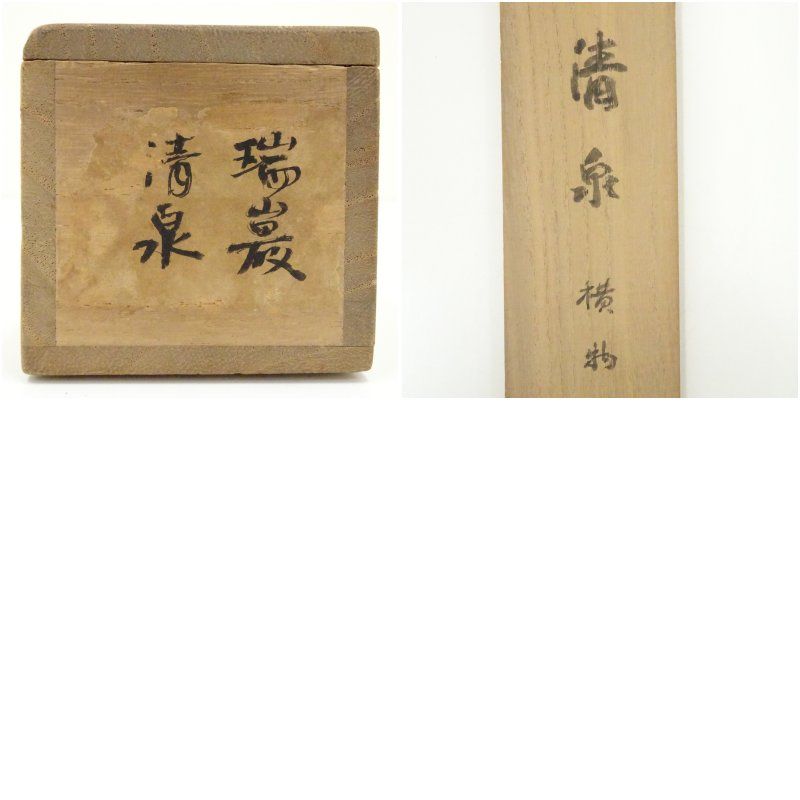 瑞巖
清泉
清泉 横物